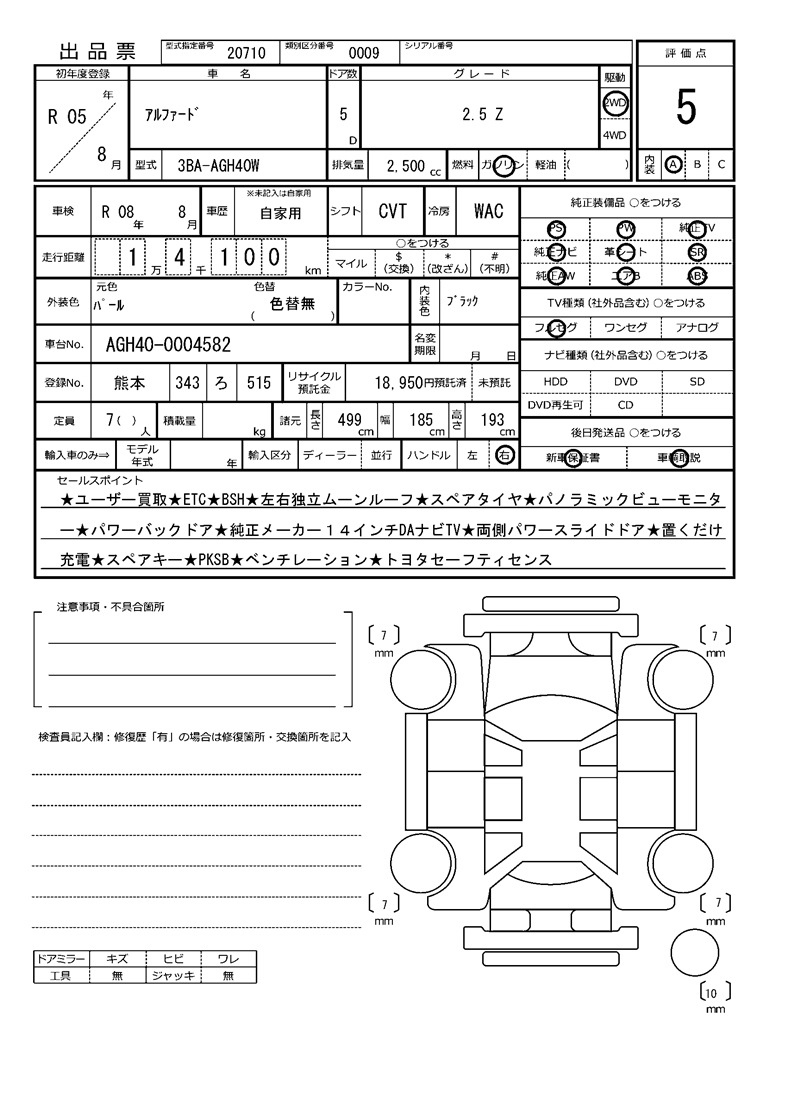 出品票 型式指定番号 20710 類別区分番号 0009 シリアル番号 評価点
初年度登録 車名 ドア数 グレード 駆動
R 05 年 8 月 アルファード 5 D 2.5 Z 2WD 4WD 5
型式 3BA-AGH40W 排気量 2,500 cc 燃料 ガソリン 軽油 ( ) 内装 A B C
※未記入は自家用
車検 R 08 年 8 月 車歴 自家用 シフト CVT 冷房 WAC 純正装備品 ○をつける
PS PW 純正TV
走行距離 1 万 4 千 1 0 0 km ○をつける
マイル $ (交換) * (改ざん) # (不明)
純正ナビ 革シート SR
純正AW エアB ABS
外装色 元色 パール 色替 色替無 ( ) カラーNo. 内装色 ブラック
TV種類(社外品含む)○をつける
フルセグ ワンセグ アナログ
車台No. AGH40-0004582 名変期限 月 日
ナビ種類(社外品含む)○をつける
登録No. 熊本 343 ろ 515 リサイクル預託金 18,950円預託済 未預託
HDD DVD SD
DVD再生可 CD
定員 7( ) 人 積載量 kg 諸元 長さ 499 cm 幅 185 cm 高さ 193 cm
後日発送品 ○をつける
輸入車のみ⇒ モデル年式 年 輸入区分 ディーラー 並行 ハンドル 左 右
新車保証書 車輌取説
セールスポイント
★ユーザー買取★ETC★BSH★左右独立ムーンルーフ★スペアタイヤ★パノラミックビューモニタ
ー★パワーバックドア★純正メーカー１４インチDAナビTV★両側パワースライドドア★置くだけ
充電★スペアキー★PKSB★ベンチレーション★トヨタセーフティセンス
注意事項・不具合箇所
〔 7 〕 mm
〔 7 〕 mm
検査員記入欄：修復歴「有」の場合は修復箇所・交換箇所を記入
〔 7 〕 mm
〔 7 〕 mm
ドアミラー キズ ヒビ ワレ
工具 無 ジャッキ 無
〔 10 〕 mm